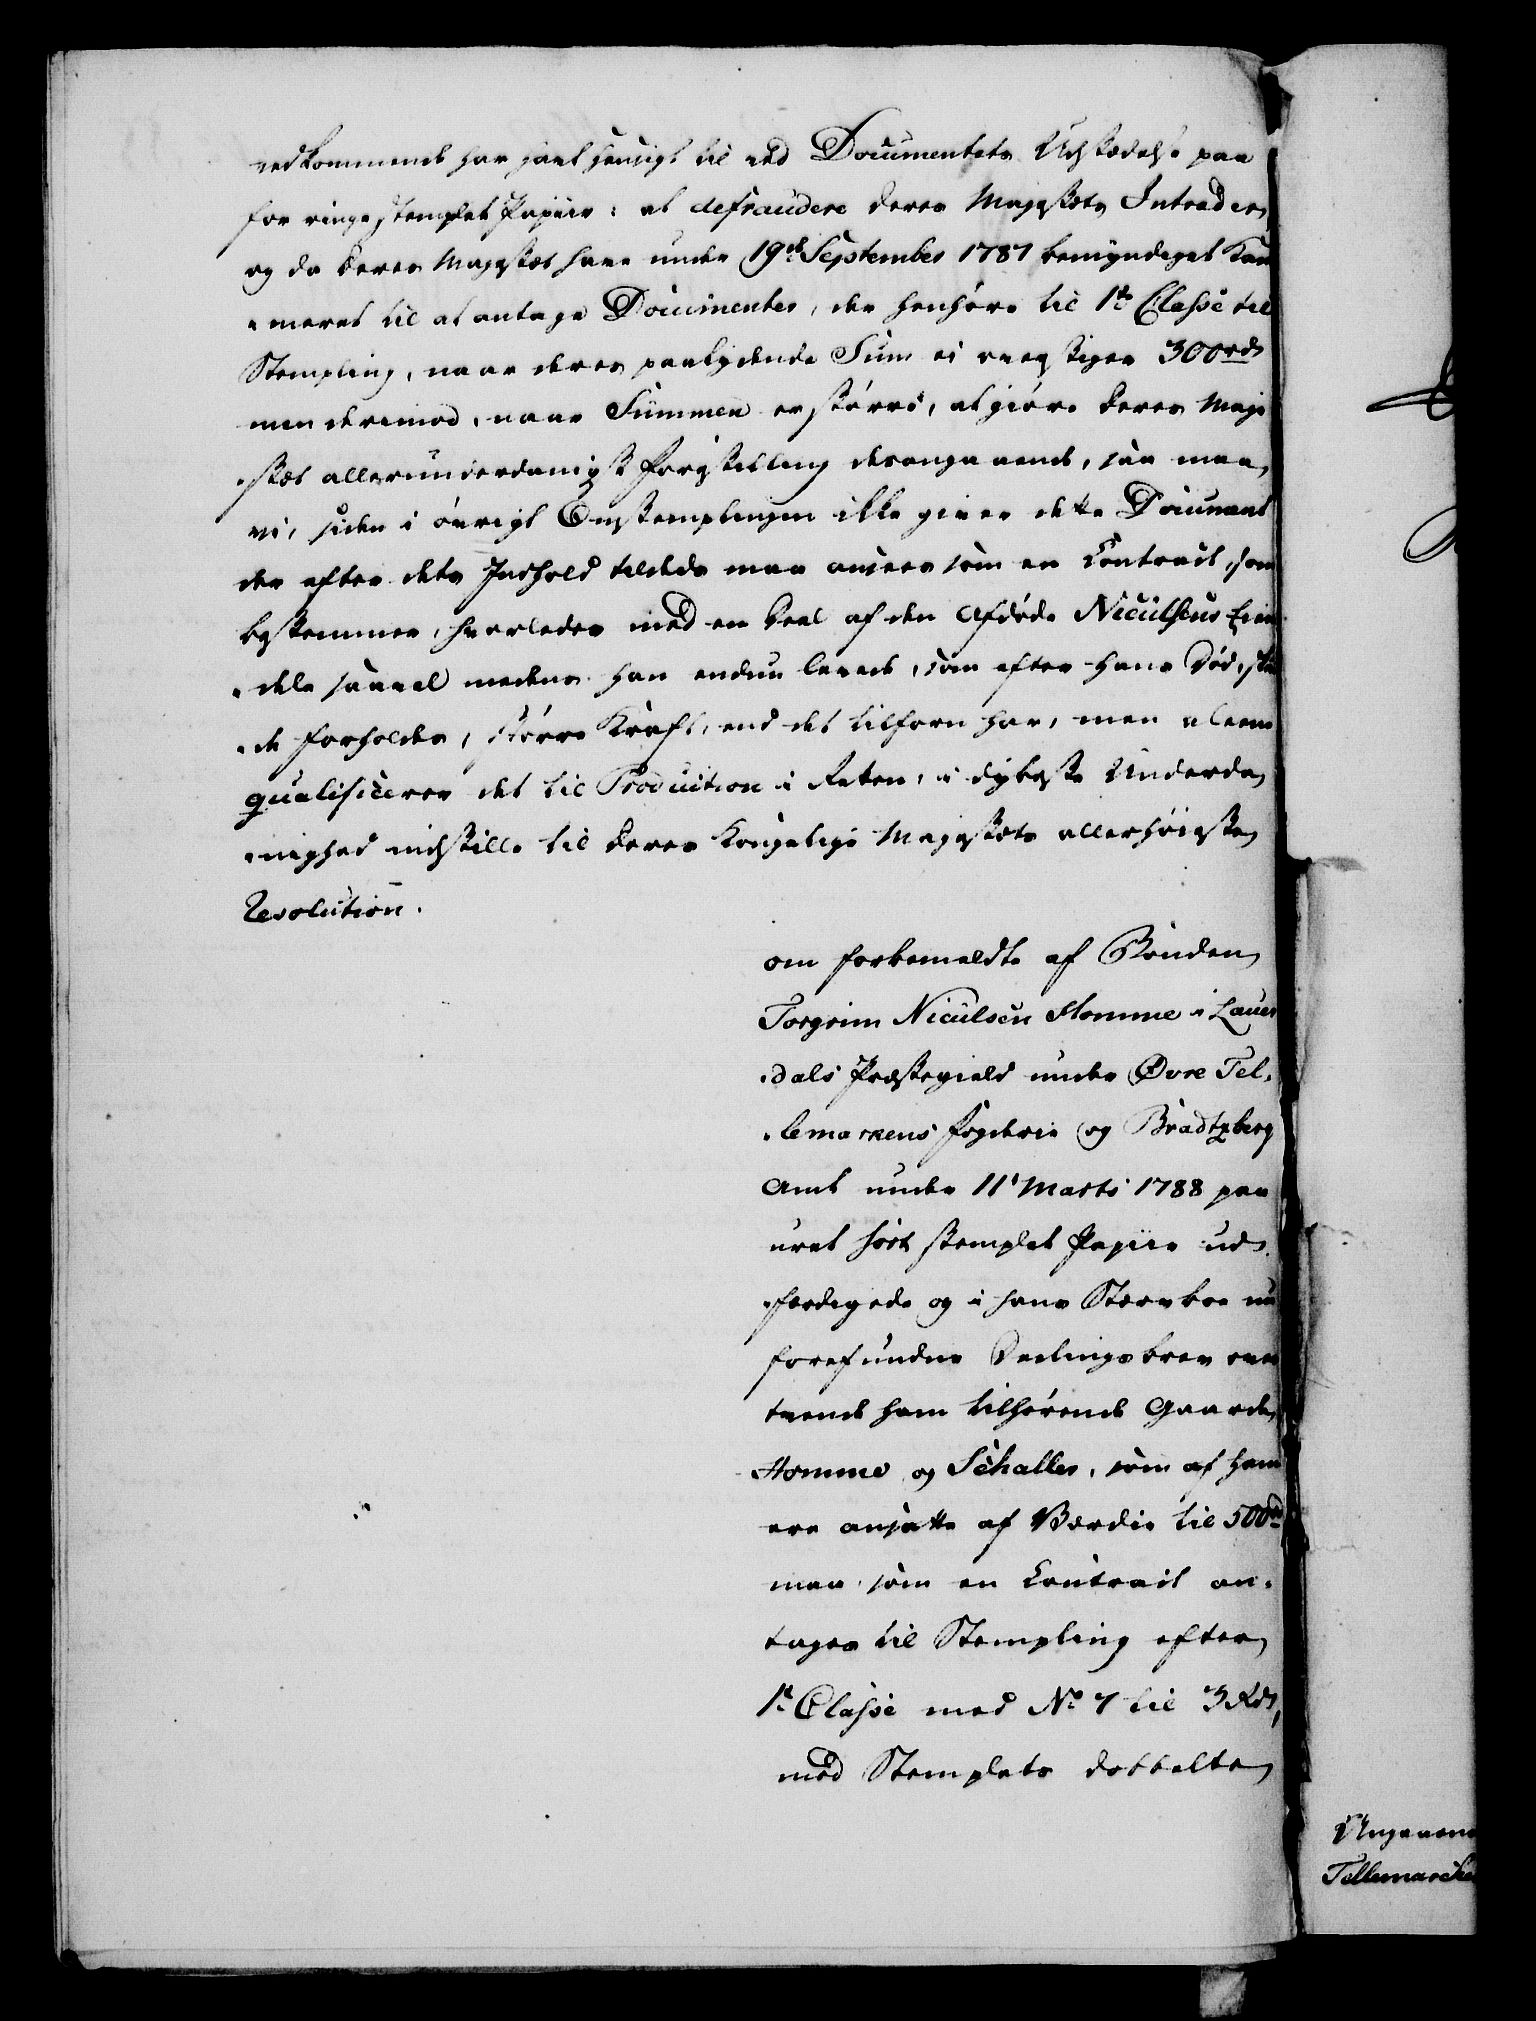 vedkommende har havt hensigt til ved Documentets Udstædelse paa
for ringe stemplet Papiir: at defraudere Deres Majestets Intrader,
og da Deres Majestet have under 19de September 1787 bemyndiget Kam
-meret til at antage Documenter, der henhøre til 1te Classe til
Stempling, naar deres paalydende Sum ei overstiger 300rd
men derimod, naar Summen er større, at giøre Deres Maje
-stet allerunderdanigst Forestilling desangaaende, saa maa
vi, siden i øvrigt Omstemplingen ikke giver dette Document
der efter dets Indhold tildeels maa ansees som en Contract, som
bestemmer, hvorledes med en Deel af den Afdøde Niculsens Eien
-dele saavel medens han endnu levede, som efter hans Død, skul
-de forholdes, større Kraft, end det tilforn har, men aleene
qualificerer det til Production i Retten, i dybeste Underda
-nighed indstille til Deres Kongelige Majestets allerhøieste
Resolution.
om forbemeldte af Bonden
Torgrim Niculsen Homme i Laur
-dals Præstegield under Øvre Tel-
-lemarkens Fogderie og Bradtzberg
Amt under 11' Marts 1788 paa
uret hört stemplet Papiir ud-
-færdigede og i hans Stervboe nu
forefundne Deelingsbrev over
tvende ham tilhørende Gaarde
Homme og Schalles, som af ham
ere ansatte af Værdie til 500rd
maa som en Contract an-
tages til Stempling efter
1te Classe med No 7 til 3 Rd,
med Stemplets dobbelte
Angaaend
Tellemarcke